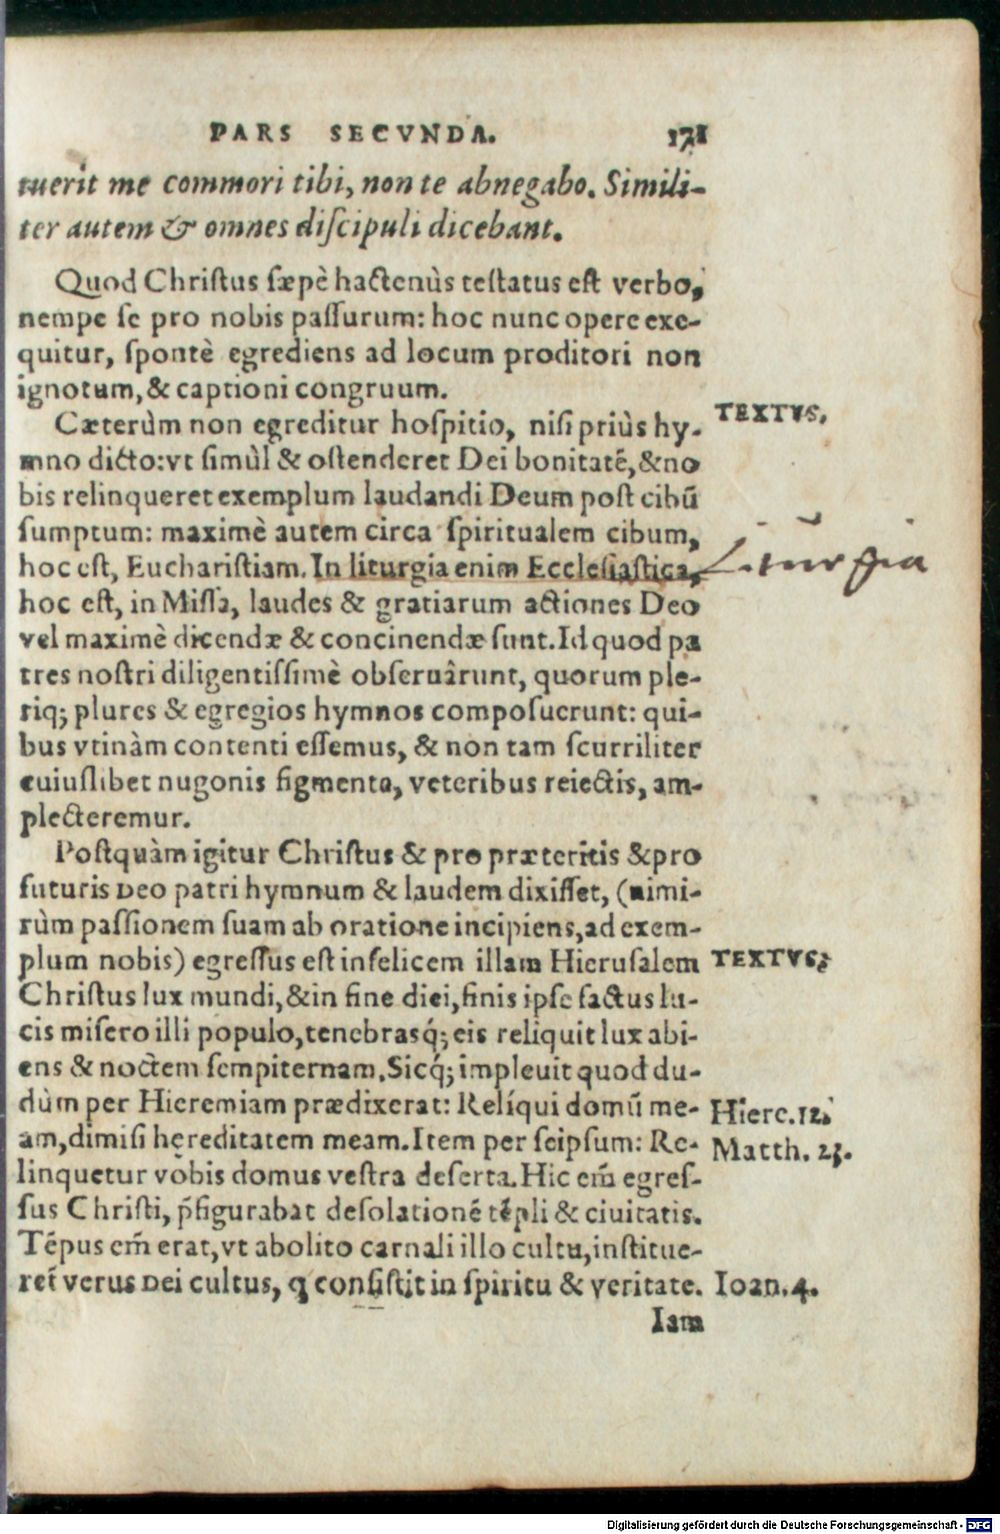 PARS SECVNDA. 171
tuerit me commori tibi, non te abnegabo. Simili-
ter autem & omnes discipuli dicebant.
Quod Christus sæpè hactenùs testatus est verbo,
nempe se pro nobis passurum: hoc nunc opere exe-
quitur, spontè egrediens ad locum proditori non
ignotum, & captioni congruum.
Cæterùm non egreditur hospitio, nisi priùs hy- TEXTVS.
mno dicto: vt simùl & ostenderet Dei bonitatē, & no
bis relinqueret exemplum laudandi Deum post cibū
sumptum: maximè autem circa spiritualem cibum,
hoc est, Eucharistiam. In liturgia enim Ecclesiastica, Liturgia
hoc est, in Missa, laudes & gratiarum actiones Deo
vel maximè dicendæ & concinendæ sunt. Id quod pa
tres nostri diligentissimè obseruârunt, quorum ple-
riq; plures & egregios hymnos composuerunt: qui-
bus vtinàm contenti essemus, & non tam scurriliter
cuiuslibet nugonis figmenta, veteribus reiectis, am-
plecteremur.
Postquàm igitur Christus & pro præteritis & pro
futuris Deo patri hymnum & laudem dixisset, (nimi-
rùm passionem suam ab oratione incipiens, ad exem-
plum nobis) egressus est infelicem illam Hierusalem TEXTVS.
Christus lux mundi, & in fine diei, finis ipse factus lu-
cis misero illi populo, tenebrasq́; eis reliquit lux abi-
ens & noctem sempiternam. Sicq́; impleuit quod du-
dùm per Hieremiam prædixerat: Relíqui domū me- Hiere. 12.
am, dimisi hęreditatem meam. Item per seipsum: Re- Matth. 23.
linquetur vobis domus vestra deserta. Hic em̄ egres-
sus Christi, p̄figurabat desolationē tēpli & ciuitatis.
Tēpus em̄ erat, vt abolito carnali illo cultu, institue-
ret verus Dei cultus, q consistit in spiritu & veritate. Ioan. 4.
Iam
Digitalisierung gefördert durch die Deutsche Forschungsgemeinschaft - DFG